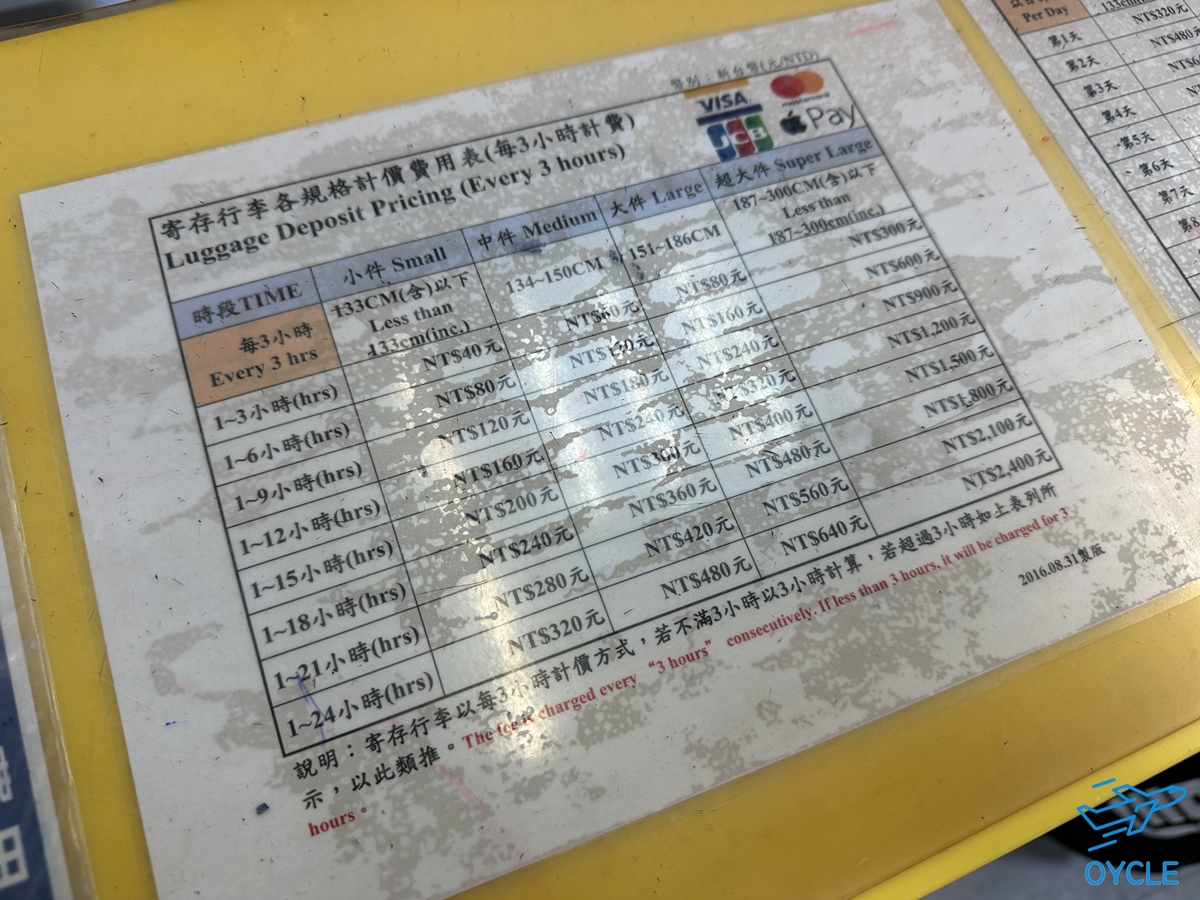 幣別：新台幣(元/NTD)
寄存行李各規格計價費用表(每3小時計費)
Luggage Deposit Pricing (Every 3 hours)
VISA
mastercard
JCB
Pay
時段TIME 小件 Small 中件 Medium 大件 Large 超大件 Super Large
每3小時
Every 3 hrs
133CM(含)以下
Less than
133cm(inc.)
134~150CM
151~186CM
187~300CM(含)以下
Less than
187~300cm(inc.)
1~3小時(hrs) NT$40元 NT$60元 NT$80元 NT$300元
1~6小時(hrs) NT$80元 NT$120元 NT$160元 NT$600元
1~9小時(hrs) NT$120元 NT$180元 NT$240元 NT$900元
1~12小時(hrs) NT$160元 NT$240元 NT$320元 NT$1,200元
1~15小時(hrs) NT$200元 NT$300元 NT$400元 NT$1,500元
1~18小時(hrs) NT$240元 NT$360元 NT$480元 NT$1,800元
1~21小時(hrs) NT$280元 NT$420元 NT$560元 NT$2,100元
1~24小時(hrs) NT$320元 NT$480元 NT$640元 NT$2,400元
說明：寄存行李以每3小時計價方式，若不滿3小時以3小時計算，若超過3小時如上表列所
示，以此類推。The fee is charged every “3 hours” consecutively. If less than 3 hours, it will be charged for 3
hours。
2016.08.31製版
Per Day
第1天 NT$320元
第2天 NT$480元
第3天
第4天
第5天
第6天
第7天
OYCLE